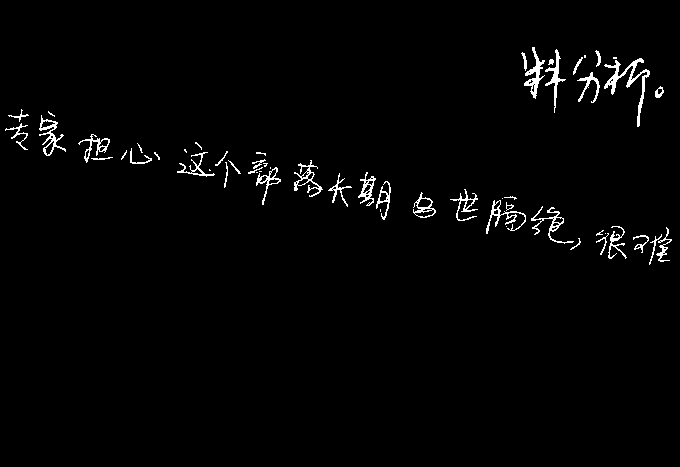 料分析。
专家担心这个部落长期与世隔绝,很难